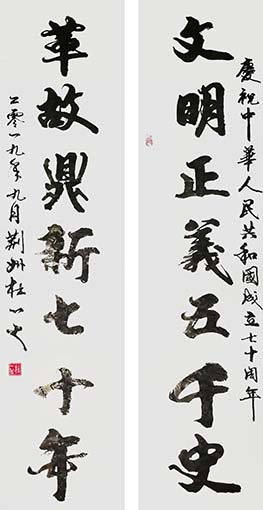 慶祝中華人民共和國成立七十周年
文明正義五千史
革故鼎新七十年
二零一九年九月荆州杜一史